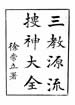 三教源流
搜神大全
徐立著